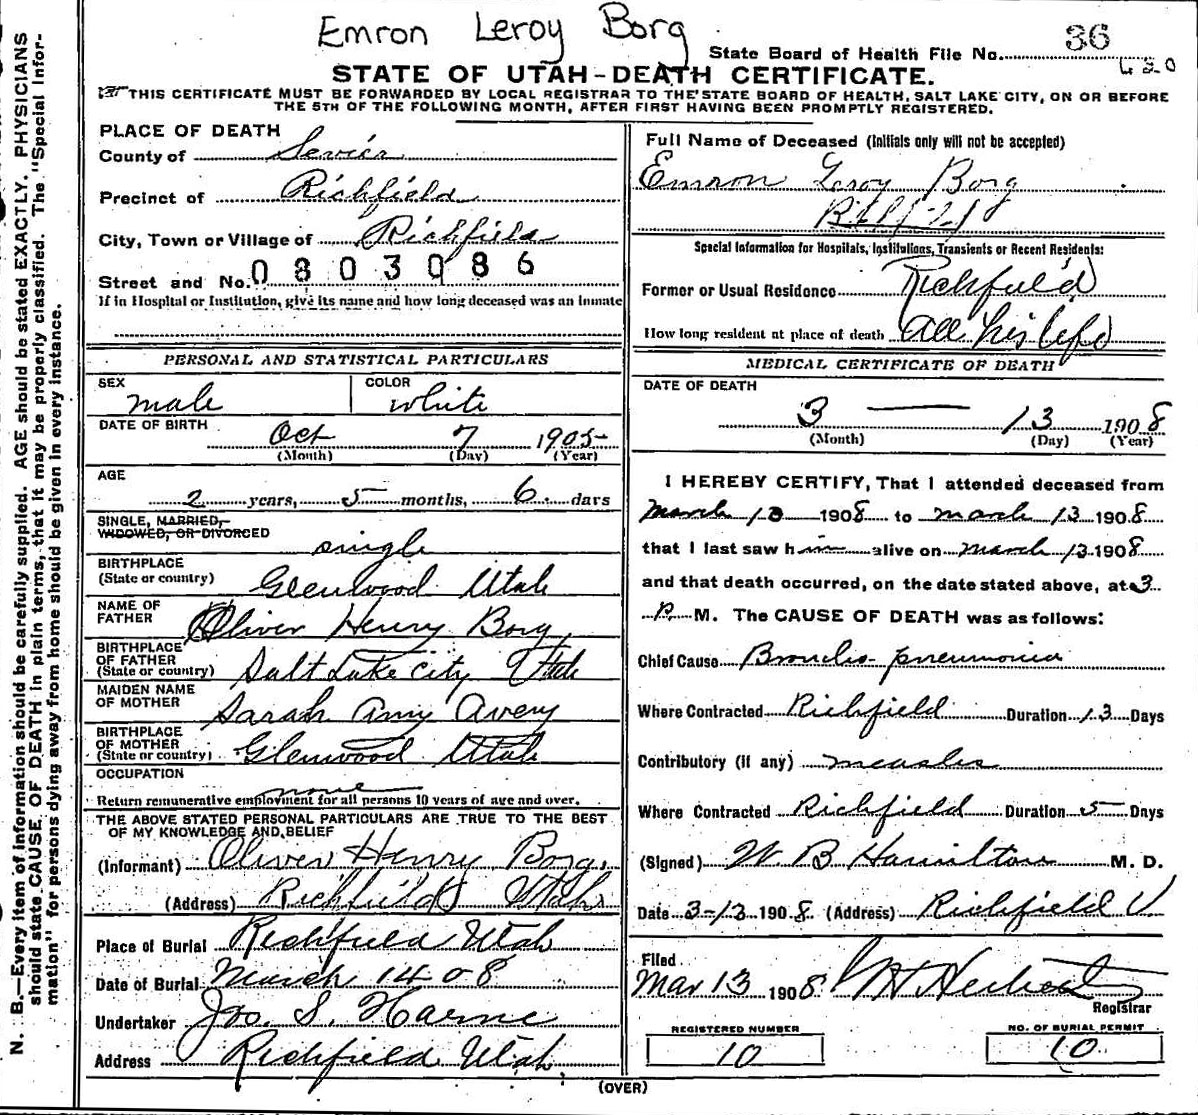 Emron Leroy Borg
State Board of Health File No. 36
420
STATE OF UTAH-DEATH CERTIFICATE.
THIS CERTIFICATE MUST BE FORWARDED BY LOCAL REGISTRAR TO THE STATE BOARD OF HEALTH, SALT LAKE CITY, ON OR BEFORE
THE 5TH OF THE FOLLOWING MONTH, AFTER FIRST HAVING BEEN PROMPTLY REGISTERED.
N. B.—Every item of information should be carefully supplied. AGE should be stated EXACTLY. PHYSICIANS
should state CAUSE OF DEATH in plain terms, that it may be properly classified. The "Special Infor-
mation" for persons dying away from home should be given in every instance.
PLACE OF DEATH
County of Sevier
Precinct of Richfield
City, Town or Village of Richfield
Street and No. 0803086
If in Hospital or Institution, give its name and how long deceased was an inmate
PERSONAL AND STATISTICAL PARTICULARS
SEX male COLOR white
DATE OF BIRTH Oct 7 1905
(Month) (Day) (Year)
AGE
2 years, 5 months, 6 days
SINGLE, MARRIED,
WIDOWED, OR DIVORCED single
BIRTHPLACE
(State or country) Glenwood Utah
NAME OF
FATHER Oliver Henry Borg
BIRTHPLACE
OF FATHER
(State or country) Salt Lake City Utah
MAIDEN NAME
OF MOTHER Sarah Amy Avery
BIRTHPLACE
OF MOTHER
(State or country) Glenwood Utah
OCCUPATION
none
Return remunerative employment for all persons 10 years of age and over.
THE ABOVE STATED PERSONAL PARTICULARS ARE TRUE TO THE BEST
OF MY KNOWLEDGE AND BELIEF
(Informant) Oliver Henry Borg.
(Address) Richfield Utah
Place of Burial Richfield Utah
Date of Burial March 14 08
Undertaker Jos. S. Harne
Address Richfield Utah
Full Name of Deceased (Initials only will not be accepted)
Emron Leroy Borg
Special Information for Hospitals, Institutions, Transients or Recent Residents:
Former or Usual Residence Richfield
How long resident at place of death all his life
MEDICAL CERTIFICATE OF DEATH
DATE OF DEATH
3 — 13 1908
(Month) (Day) (Year)
I HEREBY CERTIFY, That I attended deceased from
March 13 1908 to March 13 1908
that I last saw him alive on March 13 1908
and that death occurred, on the date stated above, at 3
P. M. The CAUSE OF DEATH was as follows:
Chief Cause Broncho-pneumonia
Where Contracted Richfield Duration 13 Days
Contributory (if any) measles
Where Contracted Richfield Duration 5 Days
(Signed) W. B Hamilton M. D.
Date 3-13 1908 (Address) Richfield U
Filed
Mar 13 1908
Registrar
REGISTERED NUMBER
10
NO. OF BURIAL PERMIT
10
(OVER)